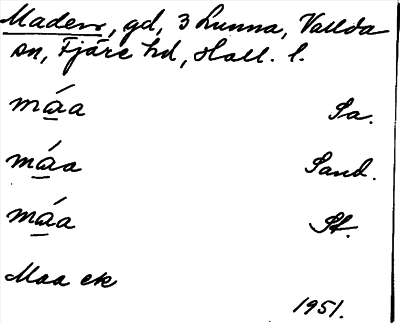 Maden, gd, 3 Lunna, Vallda
sn, Fjäre hd, Hall. l.
máa Sa.
máa Sand.
máa St.
Maa ek
1951.